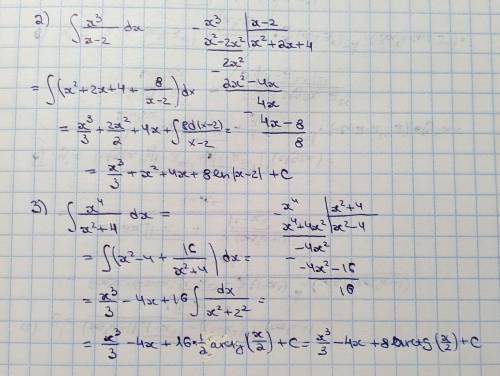 2) ∫ x³/(x-2) dx
- x³ | x-2
x²-2x² | x²+2x+4
- 2x²
2x²-4x
- 4x
4x-8
8
= ∫(x²+2x+4+ 8/(x-2))dx
= x³/3 + 2x²/2 + 4x + ∫ 8d(x-2)/(x-2) =
= x³/3 + x² + 4x + 8ln|x-2| + C
3) ∫ x⁴/(x²+4) dx =
- x⁴ | x²+4
x⁴+4x² | x²-4
- -4x²
-4x²-16
16
= ∫(x²-4+ 16/(x²+4)) dx =
= x³/3 - 4x + 16 ∫ dx/(x²+2²) =
= x³/3 - 4x + 16·1/2 arctg(x/2) + C = x³/3 - 4x + 8arctg(x/2) + C